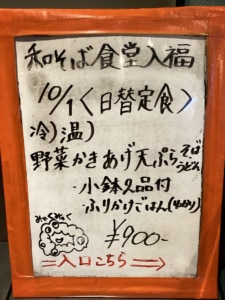 和そば食堂入福
10/1〈日替定食〉
冷)温)
野菜かきあげ天ぷらそば
うどん
・小鉢2品付
・ふりかけごはん(ゆかり)
みゃくみゃく
¥900-
⇒入口こちら⇒